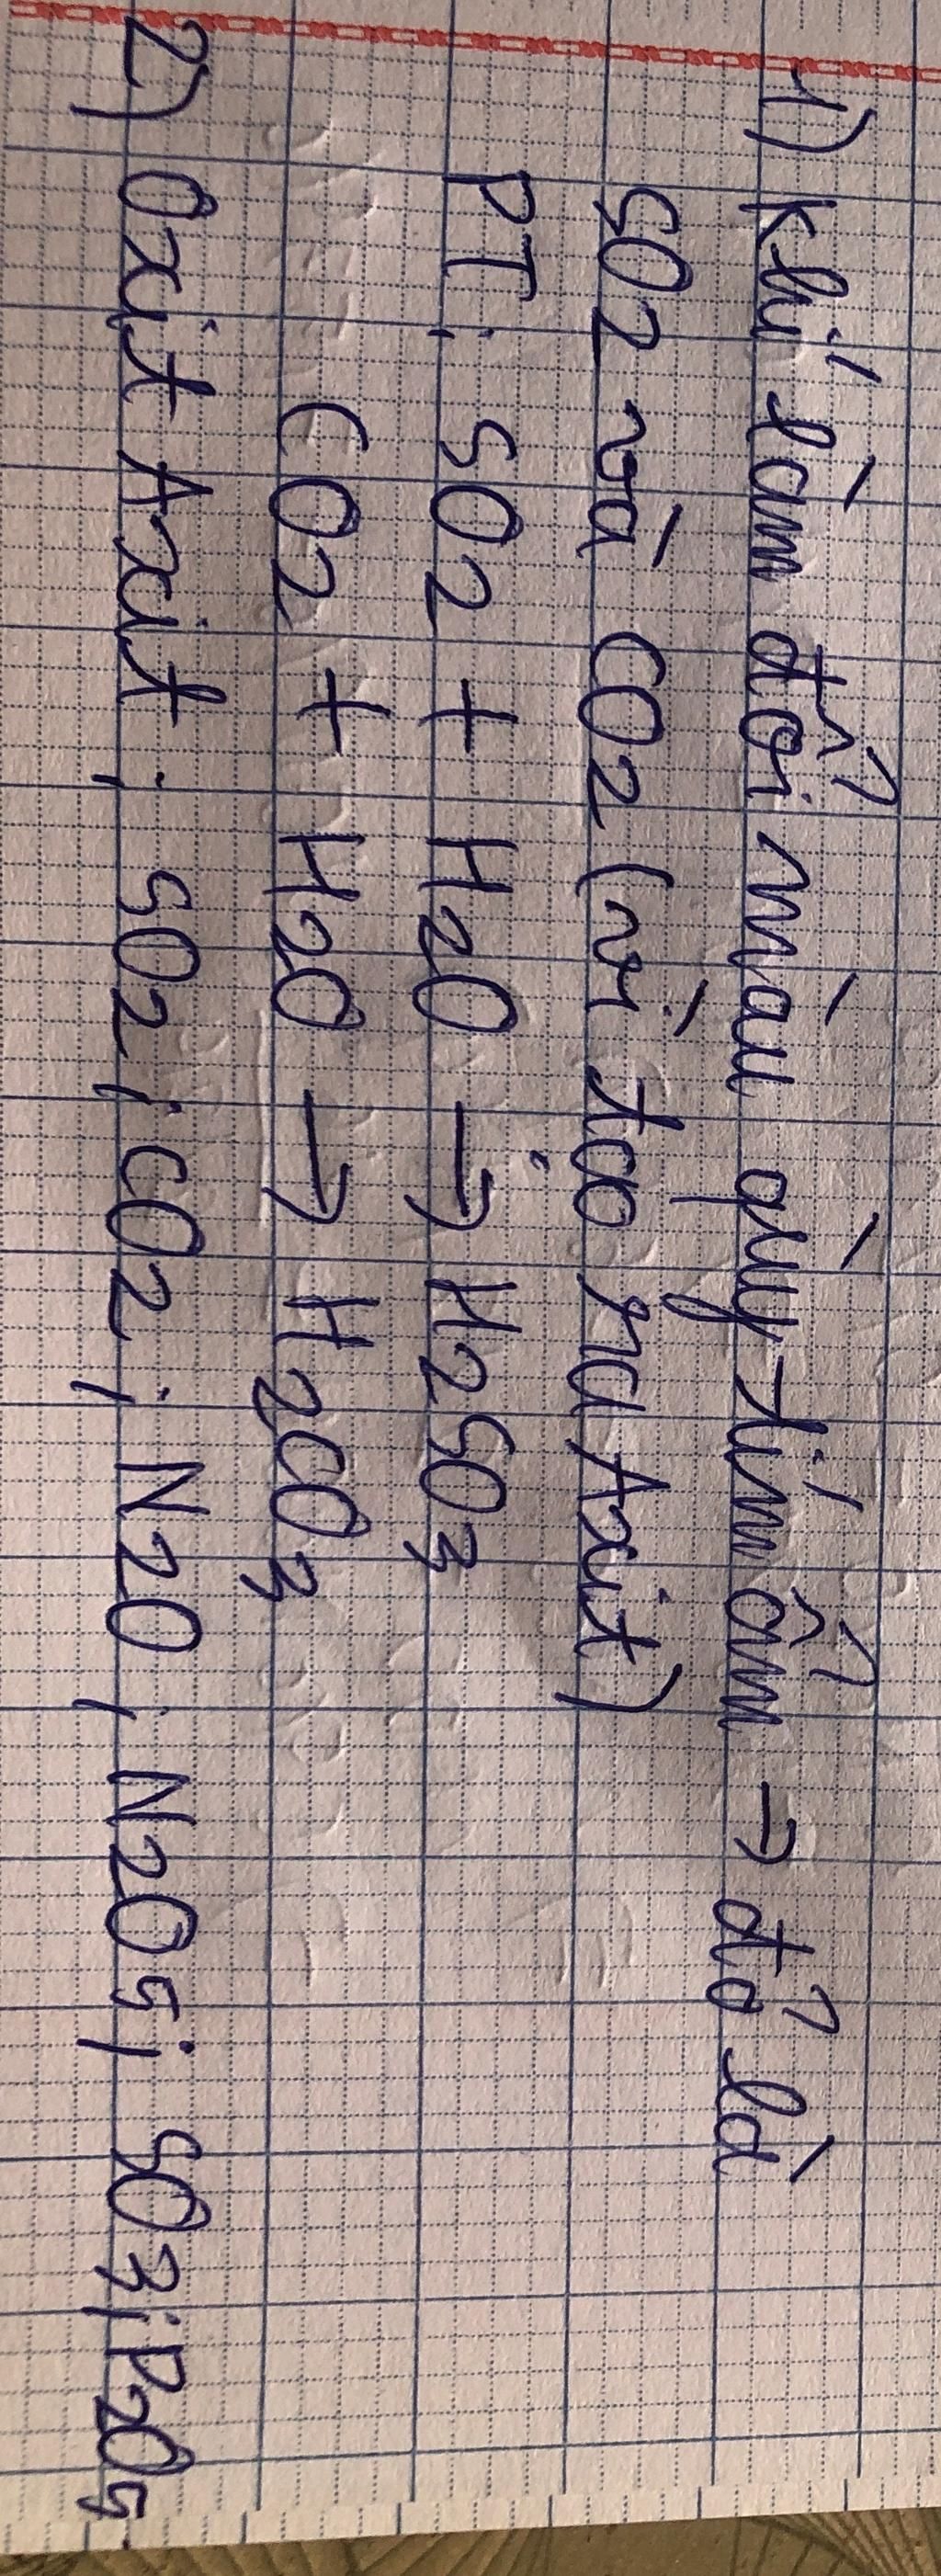 1) Khí làm đổi màu quỳ tím ẩm → đỏ là
SO2 và CO2 (vì tạo ra Axit)
PT: SO2 + H2O → H2SO3
CO2 + H2O → H2CO3
2) Oxit Axit: SO2; CO2; N2O; N2O5; SO3; P2O5